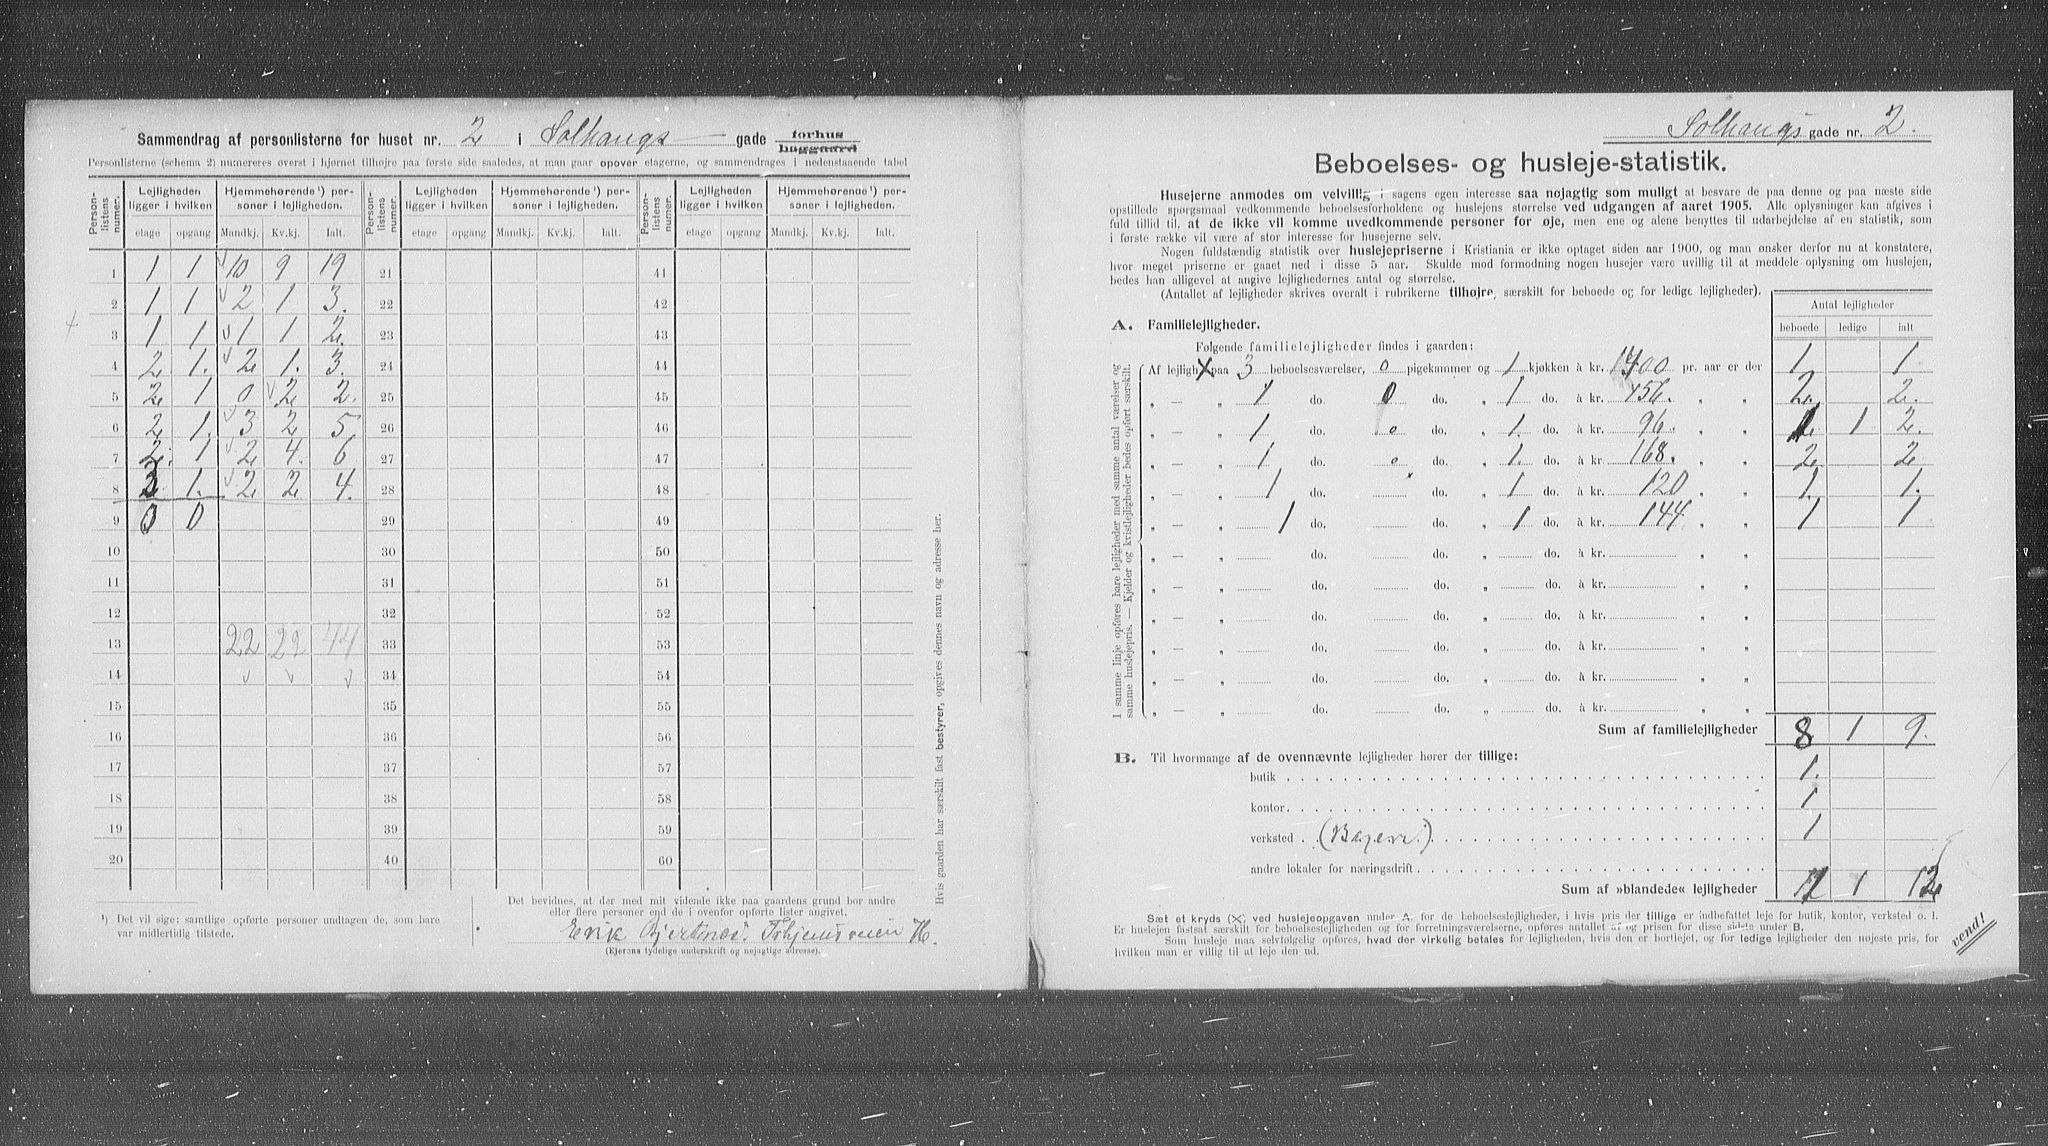 Sammendrag af personlisterne for huset nr. 2 i Solhaugs gade forhus baggaard
Personlisterne (schema 2) numereres øverst i hjørnet tilhøjre paa første side saaledes, at man gaar opover etagerne, og sammendrages i nedenstaaende tabel
Person-listens numer. Lejligheden ligger i hvilken Hjemmehørende¹) personer i lejligheden. Person-listens numer. Lejligheden ligger i hvilken Hjemmehørende¹) personer i lejligheden. Person-listens numer. Lejligheden ligger i hvilken Hjemmehørende¹) personer i lejligheden.
etage opgang Mandkj. Kv.kj. Ialt. etage opgang Mandkj. Kv.kj. Ialt. etage opgang Mandkj. Kv.kj. Ialt.
1 1 1 10 9 19 21 41
2 1 1 2 1 3. 22 42
3 1 1 1 1 2. 23 43
4 2 1. 2 1. 3. 24 44
5 2 1 0 2 2. 25 45
6 2 1. 3 2 5 26 46
7 2. 1 2 4. 6 27 47
8 3 1. 2 2 4. 28 48
9 0 0 29 49
10 30 50
11 31 51
12 32 52
13 22 22 44 33 53
14 34 54
15 35 55
16 36 56
17 37 57
18 38 58
19 39 59
20 40 60
¹) Det vil sige: samtlige opførte personer undtagen de, som bare
var midlertidig tilstede.
Det bevidnes, at der med mit vidende ikke paa gaardens grund bor andre
eller flere personer end de i ovenfor opførte lister angivet.
Erik
(Ejerens tydelige underskrift og nøjagtige adresse).
Hvis gaarden har særskilt fast bestyrer, opgives dennes navn og adresse her.
Solhaugs gade nr. 2.
Beboelses- og husleje-statistik.
Husejerne anmodes om velvillig i sagens egen interesse saa nøjagtig som muligt at besvare de paa denne og paa næste side
opstillede spørgsmaal vedkommende beboelsesforholdene og huslejens størrelse ved udgangen af aaret 1905. Alle oplysninger kan afgives i
fuld tillid til, at de ikke vil komme uvedkommende personer for øje, men ene og alene benyttes til udarbejdelse af en statistik, som
i første række vil være af stor interesse for husejerne selv.
Nogen fuldstændig statistik over huslejepriserne i Kristiania er ikke optaget siden aar 1900, og man ønsker derfor nu at konstatere,
hvor meget priserne er gaaet ned i disse 5 aar. Skulde mod formodning nogen husejer være uvillig til at meddele oplysning om huslejen,
bedes han alligevel at angive lejlighedernes antal og størrelse.
(Antallet af lejligheder skrives overalt i rubrikerne tilhøjre, særskilt for beboede og for ledige lejligheder).
Antal lejligheder
beboede ledige ialt
A. Familielejligheder.
Følgende familielejligheder findes i gaarden:
I samme linje opføres bare lejligheder med samme antal værelser og
samme huslejepris. — Kjelder og kvistlejligheder bedes opført særskilt.
Af lejligh X paa 3 beboelsesværelser, 0 pigekammer og 1 kjøkken à kr. 1400 pr. aar er der 1 1.
„ — „ 1 do. 0 do. „ 1 do. à kr. 156. „ „ 2. 2.
„ — „ 1 do. 0 do. „ 1. do. à kr. 96. „ „ 1 1 2.
„ — „ 1 do. 0 do. „ 1. do. à kr. 168. „ „ 2 2
„ — „ 1 do. do. „ 1 do. à kr. 120 „ „ 1. 1.
„ — „ 1 do. do. „ 1 do. à kr. 144 „ „ 1 1
„ — „ do. do. „ do. à kr. „ „
„ — „ do. do. „ do. à kr. „ „
„ — „ do. do. „ do. à kr. „ „
„ — „ do. do. „ do. à kr. „ „
„ — „ do. do. „ do. à kr. „ „
„ — „ do. do. „ do. à kr. „ „
Sum af familielejligheder 8 1 9.
B. Til hvormange af de ovennævnte lejligheder hører der tillige:
butik 1.
kontor 1
verksted (Bageri.) 1
andre lokaler for næringsdrift
Sum af »blandede« lejligheder 1 12
Sæt et kryds (X) ved huslejeopgaven under A. for de beboelseslejligheder, i hvis pris der tillige er indbefattet leje for butik, kontor, verksted o. l.
Er huslejen fastsat særskilt for beboelseslejligheden og for forretningsværelserne, opføres antallet af og prisen for disse sidste under B.
Som husleje maa selvfølgelig opføres, hvad der virkelig betales for lejligheden, hvis den er bortlejet, og for ledige lejligheder den nøjeste pris, for
hvilken man er villig til at leje den ud.
vend!